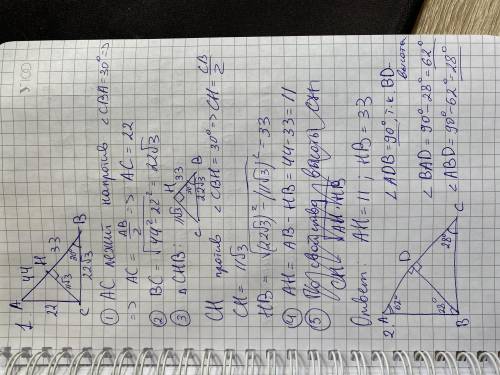 У 100
1.
A
44
H
33
B
22
11√3
30°
C
22√3
① AC лежит напротив ∠CBA = 30° =>
=> AC = AB/2 => AC = 22
② BC = √44² - 22² = 22√3
③ △CHB:
H
11√3
33
30°
C
22√3
B
CH против ∠CBH = 30° => CH = CB/2
CH = 11√3
HB = √(22√3)² - (11√3)² = 33
④ AH = AB - HB = 44 - 33 = 11
⑤ По свойству высоты CH
CH = √AH·HB
Ответ: AH = 11; HB = 33
2.
A
62°
D
28°
B
28°
C
∠ADB = 90°, т.к. BD-
высота
∠BAD = 90° - 28° = 62°
∠ABD = 90° - 62° = 28°